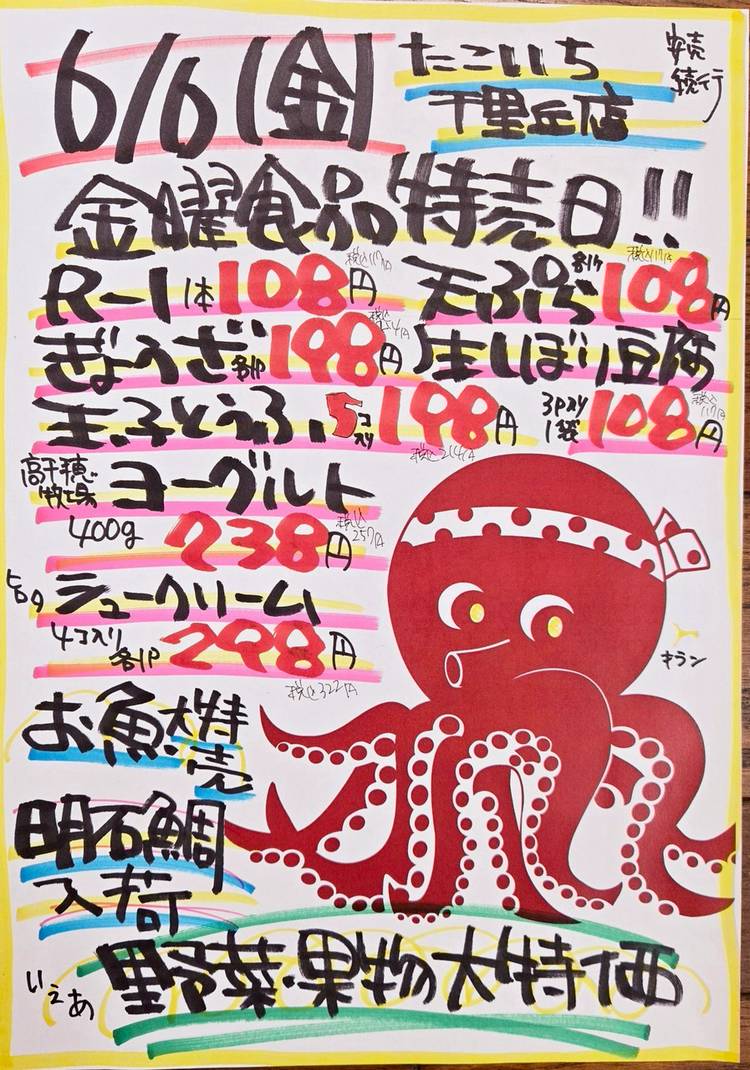 6/6(金)
たこいち
千里丘店
安売
続行
金曜食品特売日!!
R-1 1本 108円 税込117円
天ぷら 各1ケ 108円 税込117円
ぎょうざ 各1P 198円
生しぼり豆腐
3P入り
1袋 108円 税込117円
玉子とうふ 5コ入り 198円 税込214円
高千穂牧場 ヨーグルト
400g 238円 税込257円
ヒロタ シュークリーム
4コ入り 各1P 298円 税込322円
キラン
お魚大特売
明石鯛
入荷
いぇあ
野菜・果物大特価